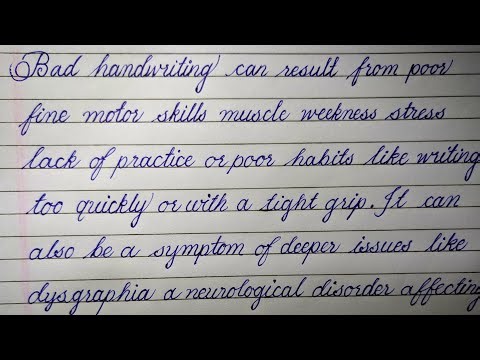 Bad handwriting can result from poor
fine motor skills muscle weekness stress
lack of practice or poor habits like writing
too quickly or with a tight grip. It can
also be a symptom of deeper issues like
dysgraphia a neurological disorder affecting